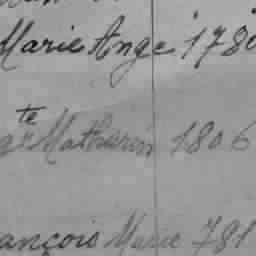 Marie Ange 178
te Mathurin 1806
ançois Marie 781